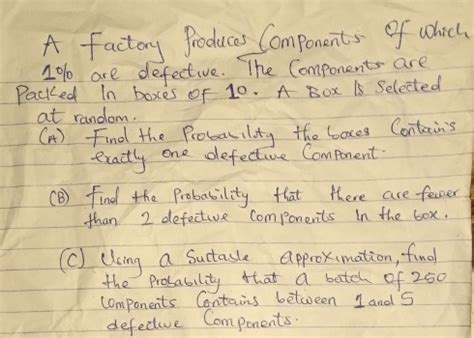 A factory Produces Components Of which
1% are defective. The Components are
Packed In boxes OF 10. A Box Is Selected
at random.
(A) Find the Probability the boxes Contain's
exactly one defective Component.
(B) Find the Probability that there are fewer
than 2 defective Components In the box.
(C) Using a Suitable approximation, find
the Probability that a batch of 250
Components Contains between 1 and 5
defective Components.